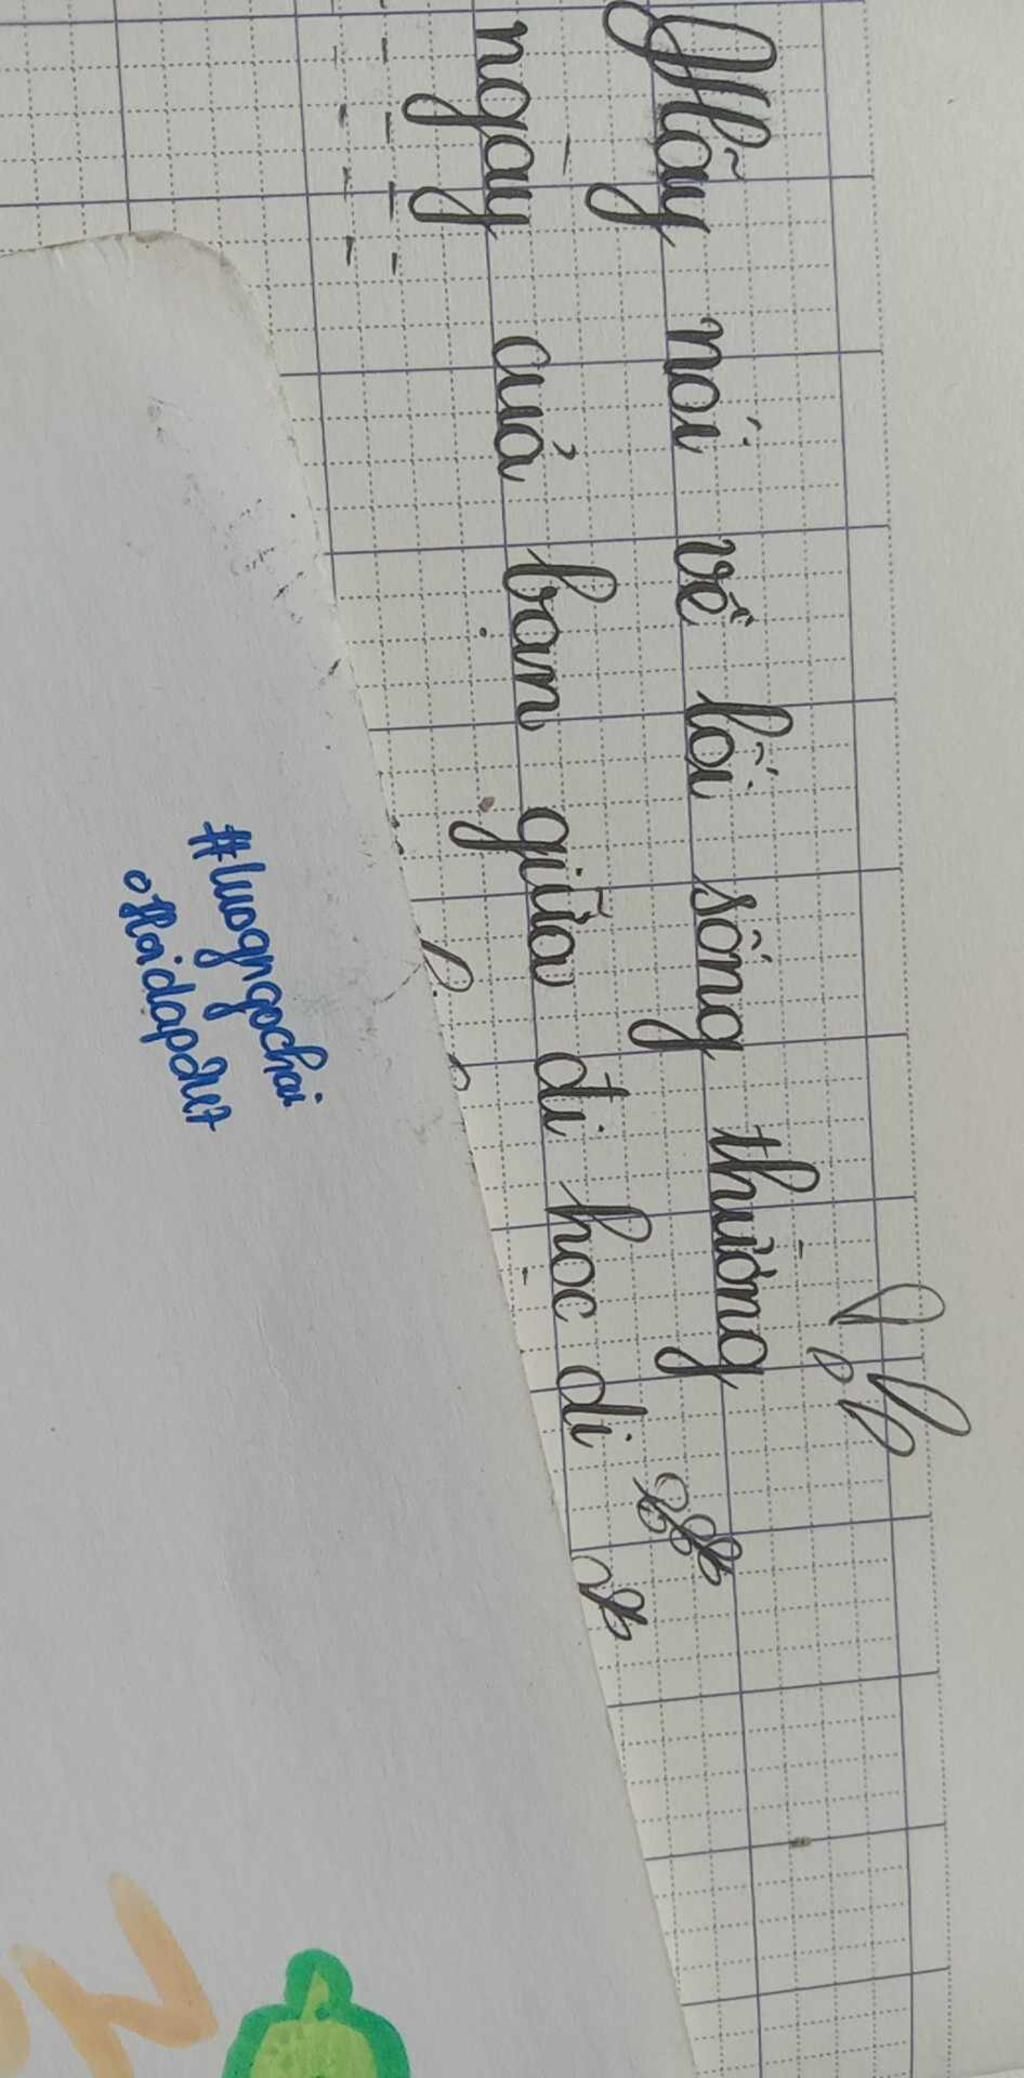 Hãy nói về lối sống thường
ngày của bạn giữa đi học đi
#luogngochai